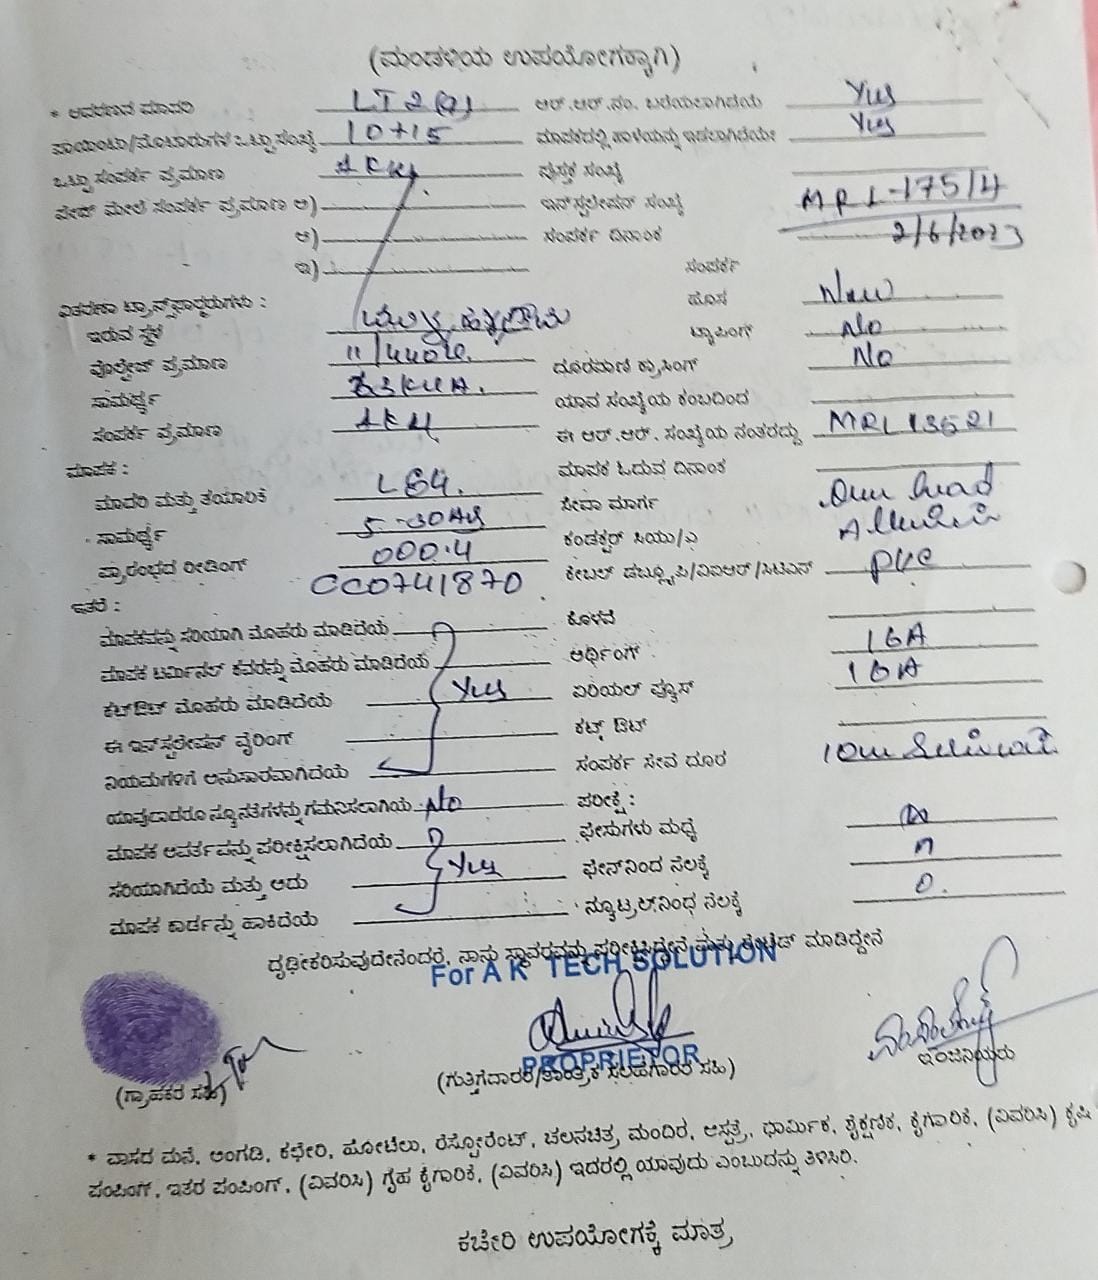 (ಮಂಡಳಿಯ ಉಪಯೋಗಕ್ಕಾಗಿ)
* ಆವರಣದ ಮಾದರಿ LT 2(a) ಆರ್.ಆರ್.ನಂ. ಬರೆಯಲಾಗಿದೆಯೆ Yes
ಪಾಯಿಂಟು/ಮೋಟಾರುಗಳ ಒಟ್ಟು ಸಂಖ್ಯೆ 10+15 ಮಾಪಕದಲ್ಲಿ ಹಾಳೆಯನ್ನು ಇಡಲಾಗಿದೆಯೇ Yes
ಒಟ್ಟು ಸಂಪರ್ಕ ಪ್ರಮಾಣ 1KW ಪುಸ್ತಕ ಸಂಖ್ಯೆ
ಪೇಜ್ ಮೇಲೆ ಸಂಪರ್ಕ ಪ್ರಮಾಣ ಅ) ಇನ್‌ಸ್ಟಲೇಷನ್ ಸಂಖ್ಯೆ MRL-175/4
ಆ) ಸಂಪರ್ಕ ದಿನಾಂಕ 2/6/2023
ಇ) ಸಂಪರ್ಕ
ವಿತರಣಾ ಟ್ರಾನ್ಸ್‌ಫಾರ್ಮರುಗಳು : ಹೊಸ New
ಇರುವ ಸ್ಥಳ ಟ್ಯಾಪಿಂಗ್ No
ವೋಲ್ಟೇಜ್ ಪ್ರಮಾಣ 11/440 ದೂರವಾಣಿ ಕ್ರಾಸಿಂಗ್ No
ಸಾಮರ್ಥ್ಯ KVA. ಯಾವ ಸಂಖ್ಯೆಯ ಕಂಬದಿಂದ
ಸಂಪರ್ಕ ಪ್ರಮಾಣ 1KW ಈ ಆರ್.ಆರ್. ಸಂಖ್ಯೆಯ ನಂತರದ್ದು MRL 13521
ಮಾಪಕ : ಮಾಪಕ ಓದುವ ದಿನಾಂಕ
ಮಾದರಿ ಮತ್ತು ತಯಾರಿಕೆ L&G. ಸೇವಾ ಮಾರ್ಗ Over head
ಸಾಮರ್ಥ್ಯ 5-30A ಕಂಡಕ್ಟರ್ ಸಿಯು/ಎ
ಪ್ರಾರಂಭದ ರೀಡಿಂಗ್ 000.4 ಕೇಬಲ್ ಡಬ್ಲ್ಯೂಪಿ/ವಿಐಆರ್/ಸಿಟಿಎಸ್ PVC
CC0741870
ಇತರೆ : ಕೊಳವೆ
ಮಾಪಕವನ್ನು ಸರಿಯಾಗಿ ಮೊಹರು ಮಾಡಿದೆಯೆ ಆರ್ಥಿಂಗ್ 16A
ಮಾಪಕ ಟರ್ಮಿನಲ್ ಕವರನ್ನು ಮೊಹರು ಮಾಡಿದೆಯೆ ಏರಿಯಲ್ ಫ್ಯೂಸ್ 16A
ಕಟ್‌ಔಟ್ ಮೊಹರು ಮಾಡಿದೆಯೆ Yes ಕಟ್ ಔಟ್
ಈ ಇನ್‌ಸ್ಟಲೇಷನ್ ವೈರಿಂಗ್
ನಿಯಮಗಳಿಗೆ ಅನುಸಾರವಾಗಿದೆಯೆ ಸಂಪರ್ಕ ಸೇವೆ ದೂರ
ಯಾವುದಾದರೂ ನ್ಯೂನತೆಗಳನ್ನು ಗಮನಿಸಲಾಗಿಯೆ No ಪರೀಕ್ಷೆ :
ಮಾಪಕ ಆವರ್ತವನ್ನು ಪರೀಕ್ಷಿಸಲಾಗಿದೆಯೆ ಫೇಸುಗಳು ಮಧ್ಯೆ
ಸರಿಯಾಗಿದೆಯೆ ಮತ್ತು ಅದು Yes ಫೇಸ್‌ನಿಂದ ನೆಲಕ್ಕೆ
ಮಾಪಕ ಕಾರ್ಡನ್ನು ಹಾಕಿದೆಯೆ ನ್ಯೂಟ್ರಲ್‌ನಿಂಧ ನೆಲಕ್ಕೆ 0.
ದೃಢೀಕರಿಸುವುದೇನೆಂದರೆ, ನಾನು ಸ್ಥಾವರವನ್ನು ಪರೀಕ್ಷಿಸಿದ್ದೇನೆ ಮತ್ತು ಮಾಡಿದ್ದೇನೆ
For A K TECH SOLUTION
PROPRIETOR
(ಗ್ರಾಹಕರ ಸಹಿ) (ಗುತ್ತಿಗೆದಾರರ/ತಾಂತ್ರಿಕ ಸಲಹೆಗಾರರ ಸಹಿ) ಇಂಜಿನಿಯರು
* ವಾಸದ ಮನೆ, ಅಂಗಡಿ, ಕಛೇರಿ, ಹೋಟೆಲು, ರೆಸ್ಟೋರೆಂಟ್, ಚಲನಚಿತ್ರ ಮಂದಿರ, ಆಸ್ಪತ್ರೆ, ಧಾರ್ಮಿಕ, ಶೈಕ್ಷಣಿಕ, ಕೈಗಾರಿಕೆ, (ವಿವರಿಸಿ) ಕೃಷಿ
ಪಂಪಿಂಗ್, ಇತರ ಪಂಪಿಂಗ್, (ವಿವರಿಸಿ) ಗೃಹ ಕೈಗಾರಿಕೆ, (ವಿವರಿಸಿ) ಇದರಲ್ಲಿ ಯಾವುದು ಎಂಬುದನ್ನು ತಿಳಿಸಿರಿ.
ಕಚೇರಿ ಉಪಯೋಗಕ್ಕೆ ಮಾತ್ರ